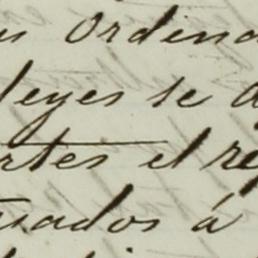 us Ordena
leyes se d
rtes el re
tuados á